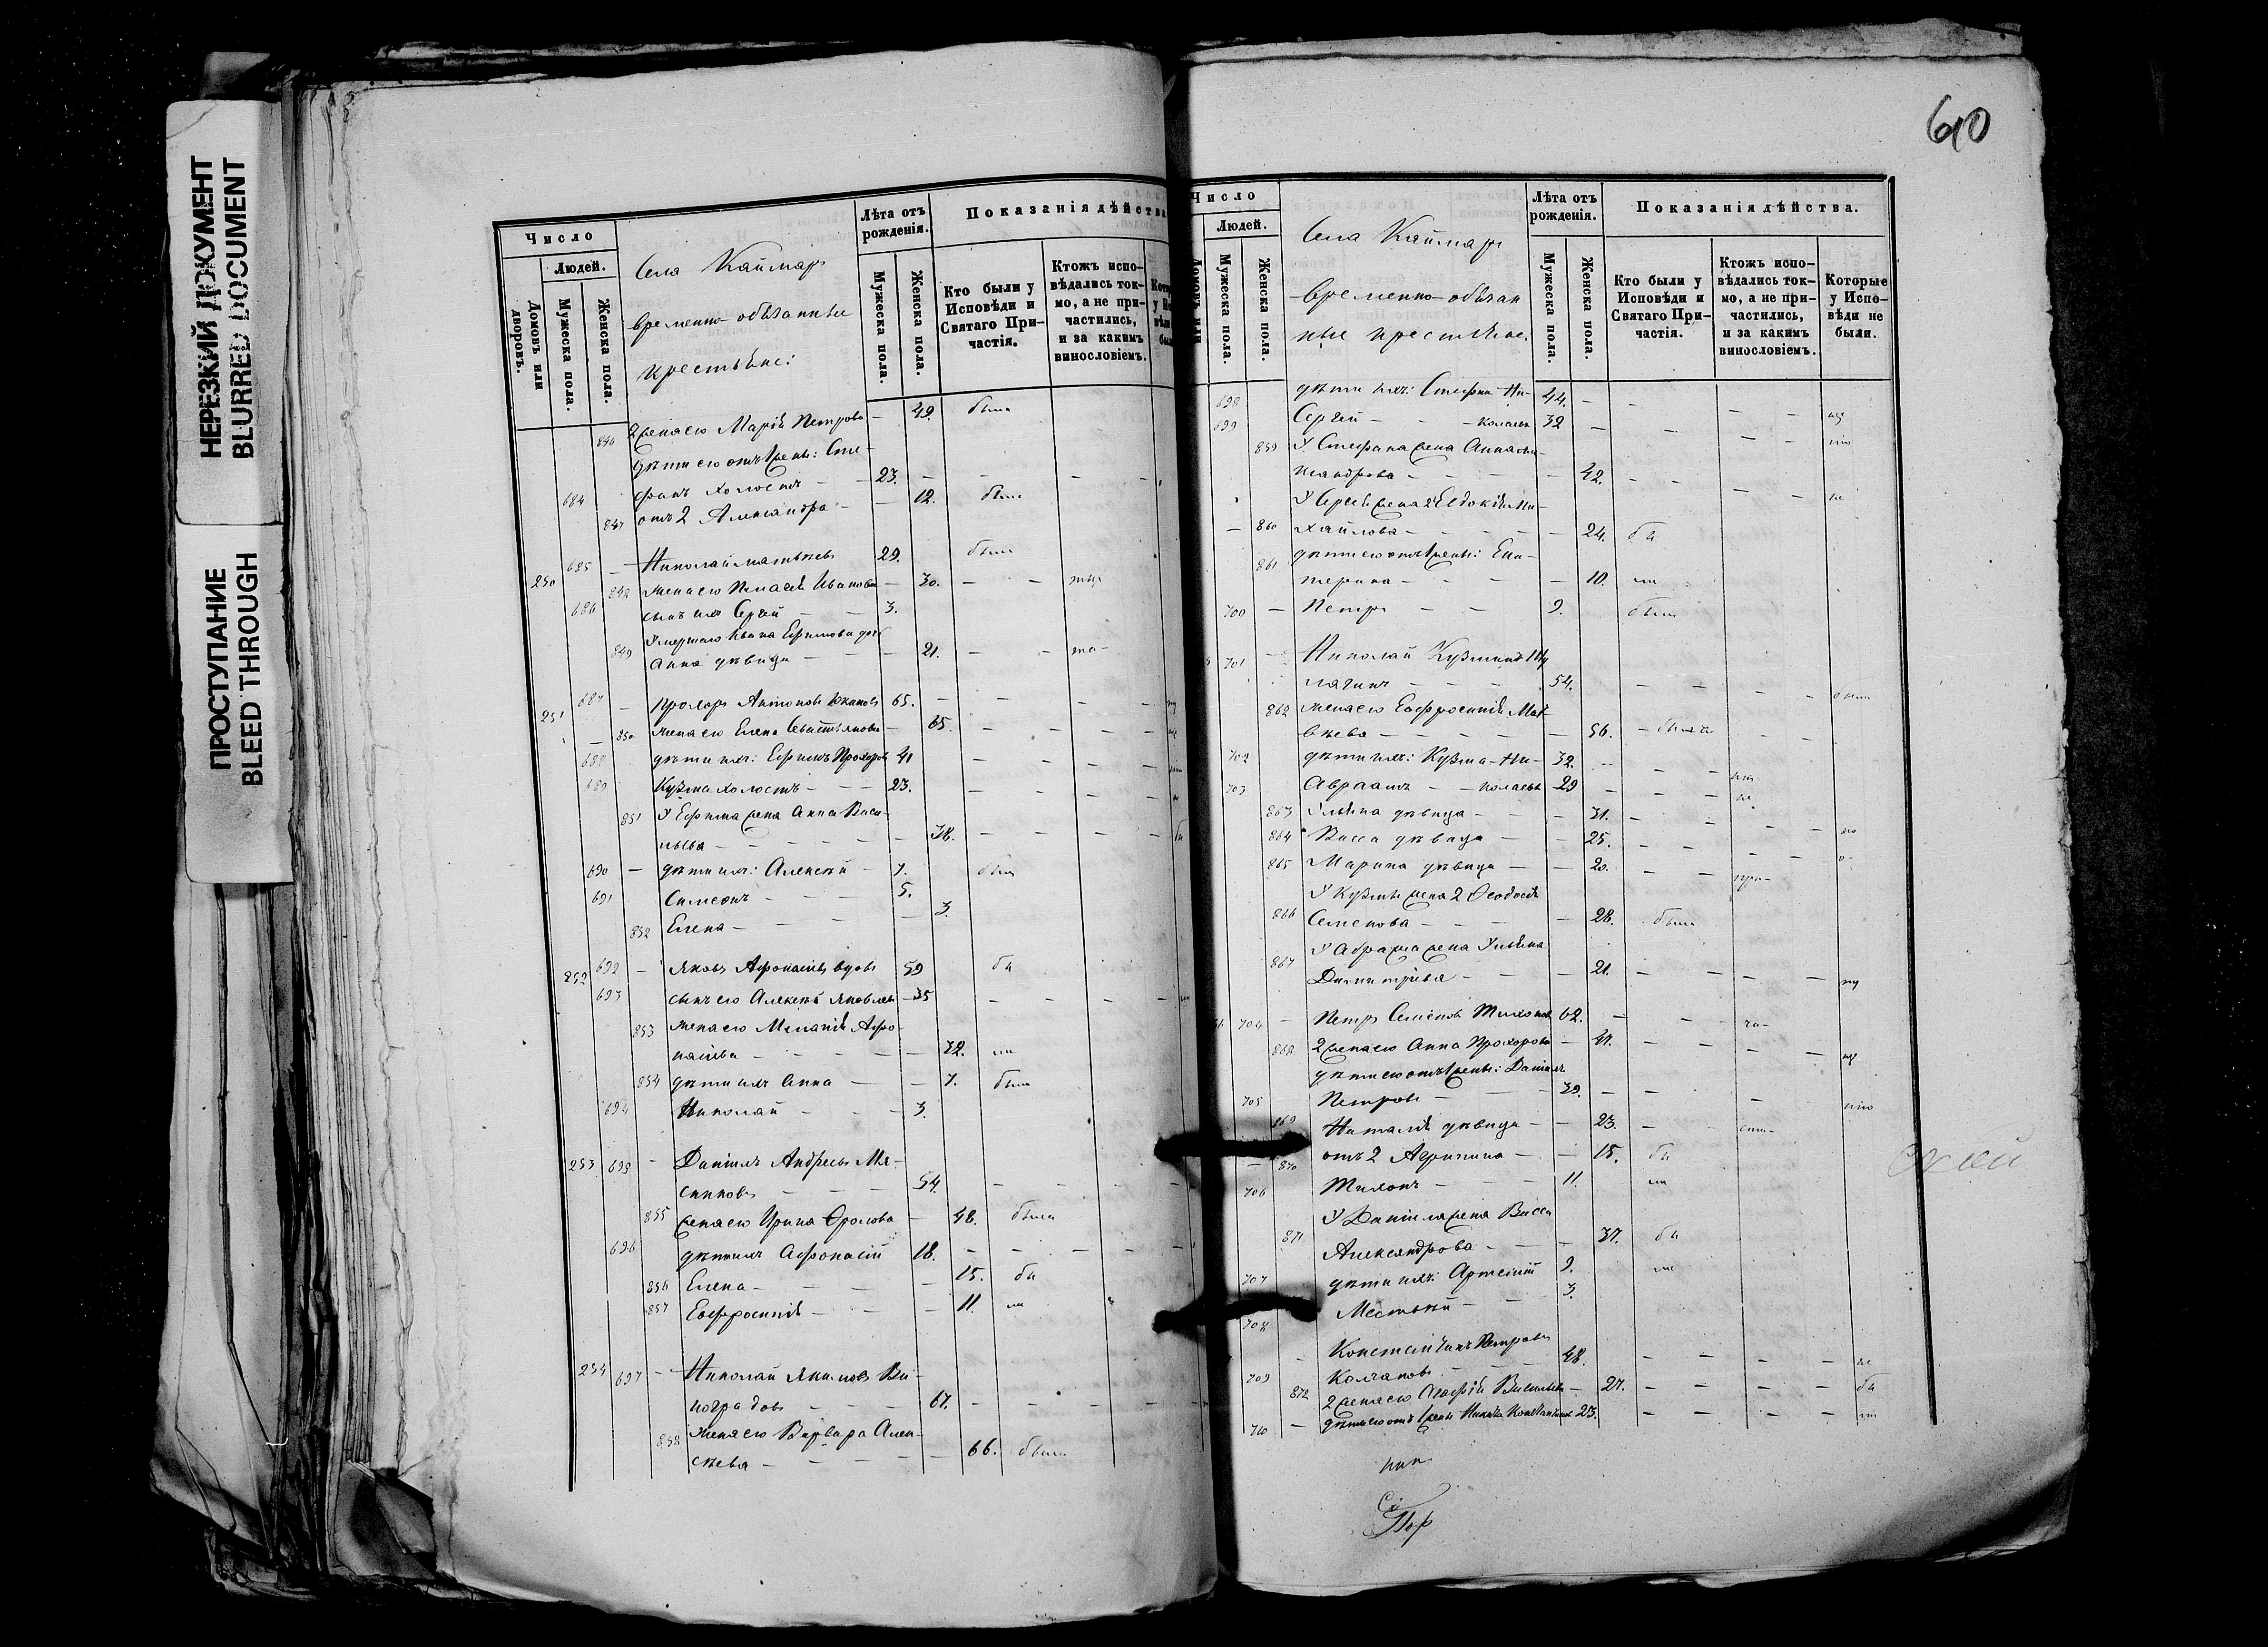 НЕРЕЗКИЙ ДОКУМЕНТ
BLURRED DOCUMENT
ПРОСТУПАНИЕ
BLEED THROUGH
Число
Людей.
Домовъ или дворовъ.
Мужеска пола.
Женска пола.
Села Каймаръ
временно-обязанные
крестьяне:
Лѣта отъ рожденія.
Мужеска пола.
Женска пола.
Показанія дѣйства
Кто были у Исповѣди и Святаго При-частія.
Ктожъ испо-вѣдались ток-мо, а не при-частились, и за какимъ винословіемъ.
846 2 жена его Марія Петрова — 49. была
дѣти его отъ 1 жены: Сте-
684 фанъ холостъ — — 23. — — —
847 отъ 2 Александра — — 12. была
250 685 — Николай Матвѣевъ 29. были
848 жена его Пелагія Иванова — 30. — —
686 сынъ ихъ Сергій — — 3.
Умершаго Ивана Ефимова дочь
849 Анна дѣвица — — — 21. — —
251 687 — Прохоръ Антоновъ 65. — — — —
— 850 жена его Елена Севастьянова — 65. — — — —
688 дѣти ихъ: Ефимъ Прохоровъ 41 — — — —
689 Кузма холостъ — — — 23. — — — —
851 У Ефима жена Анна Васи-
льева — — — — — 38. — — — —
690 — дѣти ихъ: Алексѣй — 7. были
691 Симеонъ — — — 5.
852 Елена — — — 3.
252 692 — Яковъ Афонасіевъ вдовъ 59 бы
693 сынъ его Алексѣй Яковлевъ — 35 — — — —
853 жена его Меланія Афо-
насіева — — — — — 32. ли
854 дѣти ихъ Анна — — 7. были
694 Николай — — — 3.
253 695 — Даніилъ Андреевъ Мя-
сниковъ — — — 54. — — — —
855 жена его Ирина Фролова — 48. была
696 дѣти ихъ Афонасій 18. — — — —
856 Елена — — — 15. бы
857 Евфросинія — — — 11. ли
254 697 — Николай Якимовъ Ви-
ноградовъ — — — 67. — — — —
858 жена его Варвара Алек-
сѣева — — — — — 66. была
60
Число
Людей.
Мужеска пола.
Женска пола.
Села Каймаръ
временно-обязан
ные крестьяне.
Лѣта отъ рожденія.
Мужеска пола.
Женска пола.
Показанія дѣйства.
Кто были у Исповѣди и Святаго При-частія.
Ктожъ испо-вѣдались ток-мо, а не при-частились, и за какимъ винословіемъ.
Которые у Испо-вѣди не были.
698 дѣти ихъ: Стефанъ Ни- 44. — — — —
699 Сергій — — колаевъ 32 — — — —
859 У Стефана жена Анна Але-
ксандрова — — — — 42. — — — — не
У Сергія жена 2 Евдокія Ми-
— 860 хайлова — — — — — 24. бы
861 дѣти его отъ 1 жены: Ека-
терина — — — — 10. ли
700 — Петръ — — 9. были
701 — Николай Кузминъ
— — — 54. — — — —
862 жена его Евфросинія Мат-
вѣева — — — — — 56. — была
702 дѣти ихъ: Кузма — Ни- 32. — — —
703 Авраамъ — — колаевъ 29 — — — не
863 Ульяна дѣвица — — — 31. — — — —
864 Васса дѣвица — — 25. — — — —
865 Марина дѣвица — — 20. — —
У Кузмы жена 2 Феодосія
866 Семенова — — — — 28. была
867 У Абрама жена Ульяна
Димитріева — — — 21. — — — —
704 — Петръ Семеновъ Тихоновъ 62. — —
868 2 жена его Анна Прохорова — 41. — — — —
дѣти его отъ 1 жены: Даніилъ
705 Петровъ — — — 39. — — —
869 Наталія дѣвица — — 23. —
— 870 отъ 2 Агрипина — — 15. бы
706 Тихонъ — — — 11. ли
У Даніила жена Васса
871 Александрова — — — 37. бы
707 дѣти ихъ: Артемій 9. ли
708 — 3.
— Константинъ Петровъ
709 Колпаковъ — — — 48. — — — — не
872 2 жена его Агафія Васильева — 27. — — — — бы
710 — дѣти его отъ 1 жены Никита Константиновъ 23. — — — — ли